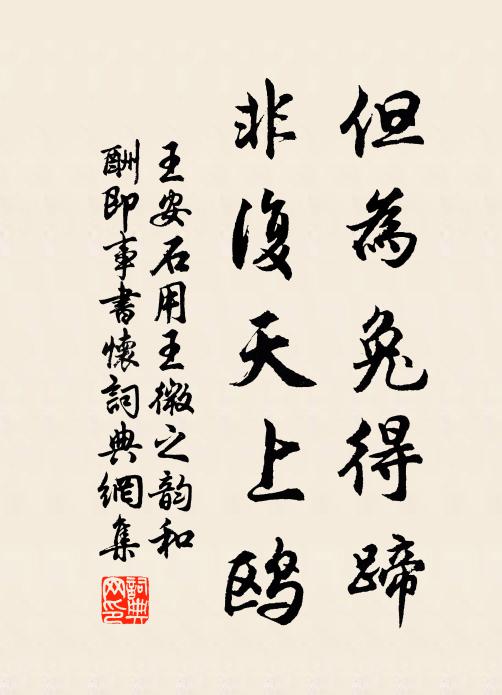 但為兔得蹄
非復天上鸥
王安石用王微之韵和
酬即事書懷詞典網集
詞典網印